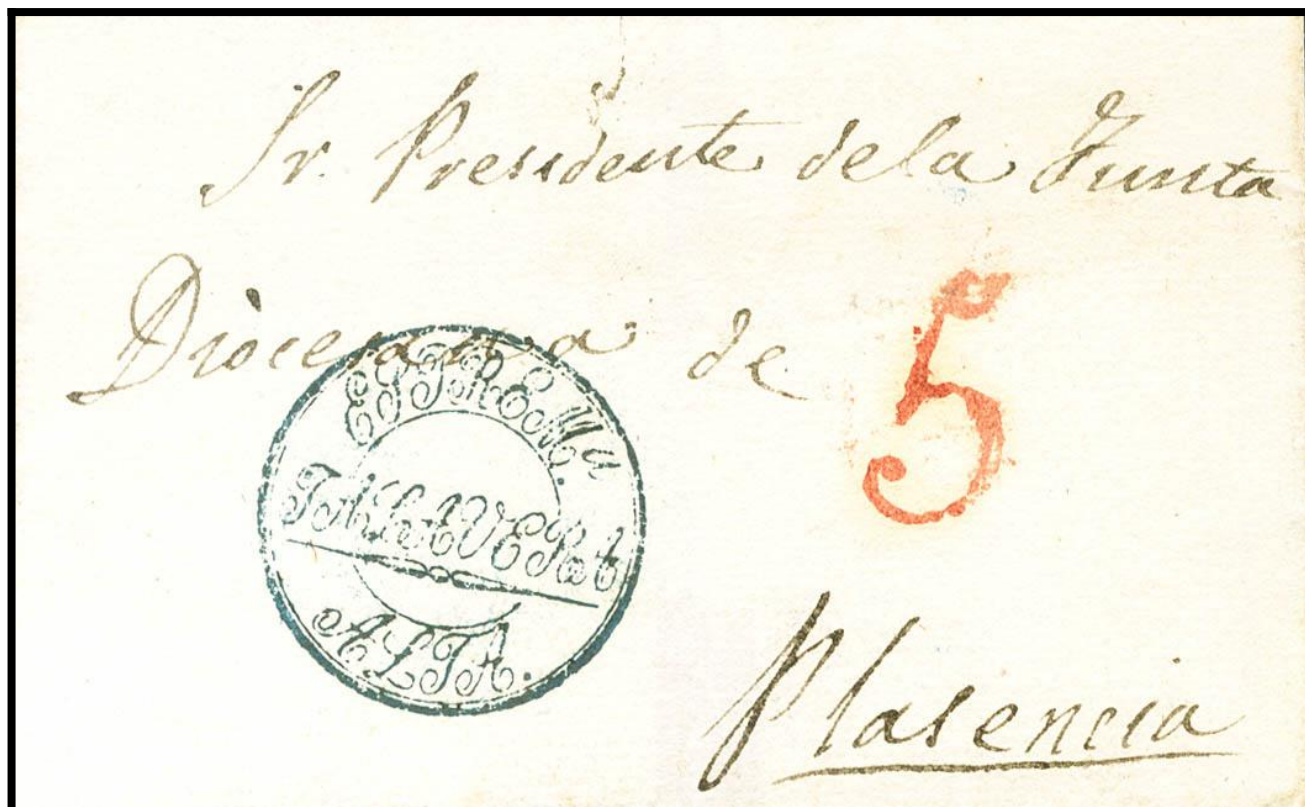 Sr. Presidente dela Junta
Diòcesana de
5
ESTREM.a
TALAVERA
ALTA.
Plasencia